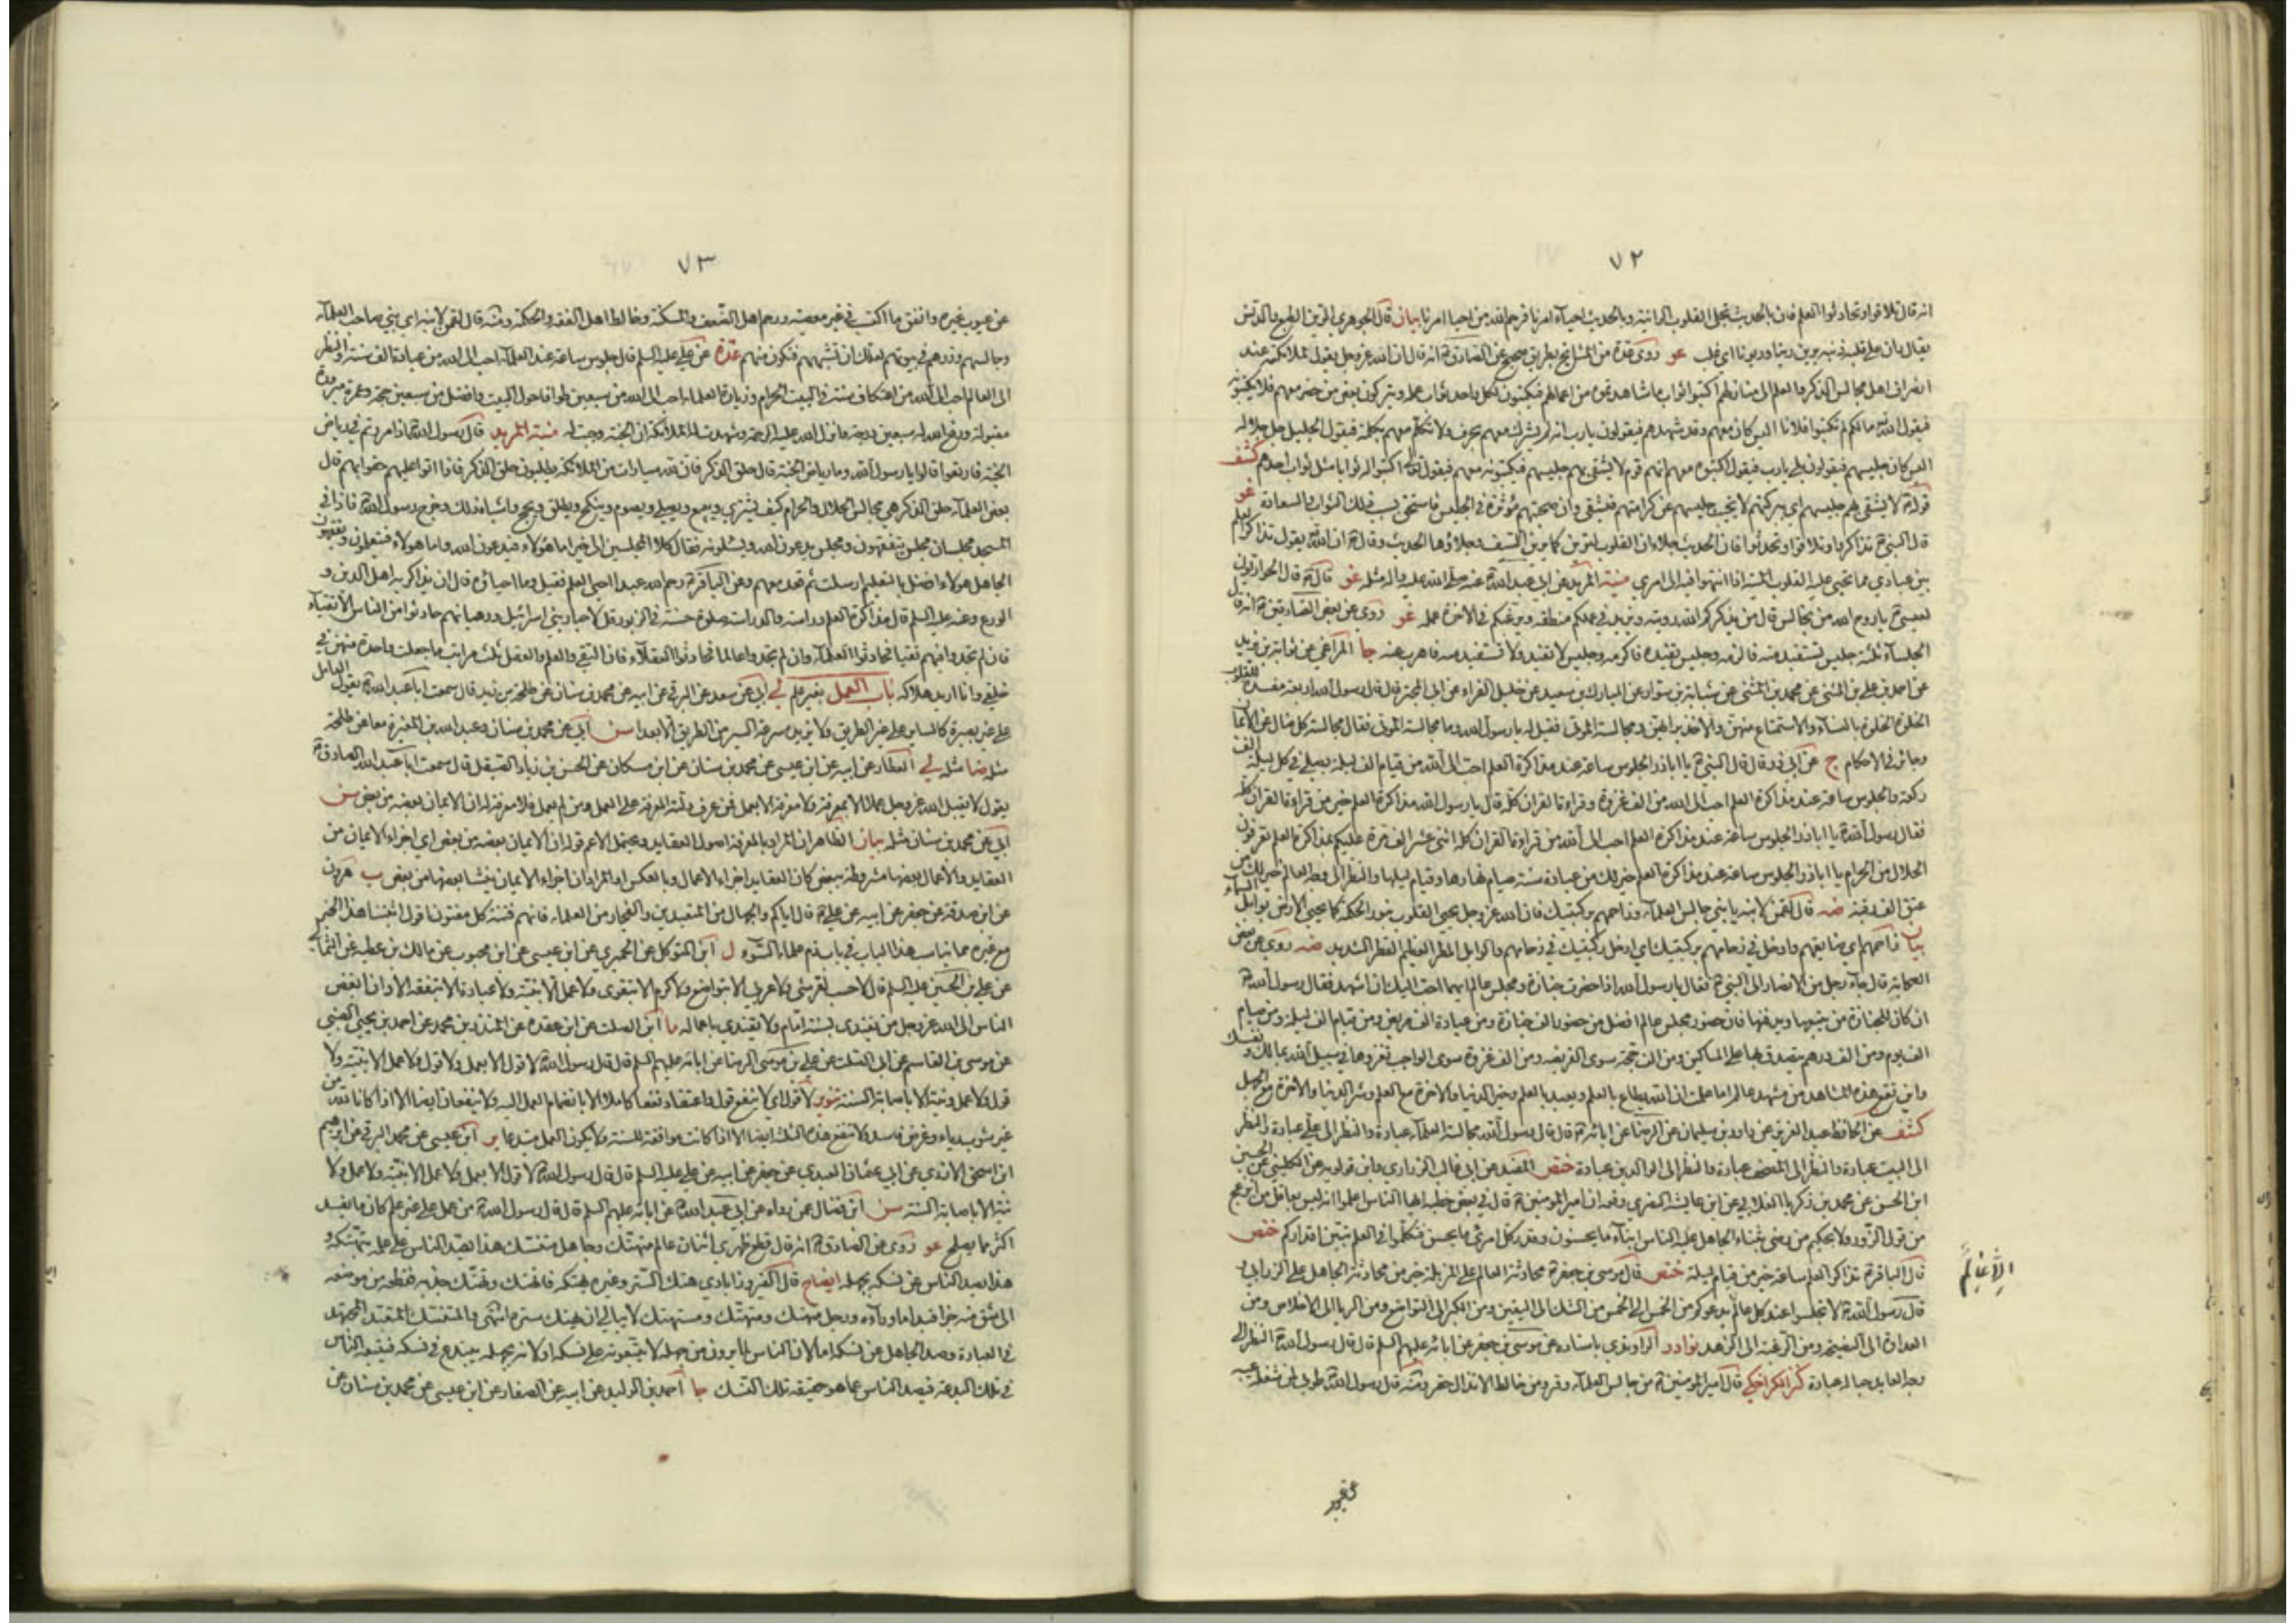 ٧٢
انه قال تلاقوا وتحادثوا العلم فان بالحديث تجلى القلوب الرائنة وبالحديث احياء امرنا فرحم الله من احيا امرنا بيان قال الجوهري الرين الطبع والدنس
يقال ران على قلبه ذنبه يرين رينا وريونا اى غلب غو روى عدة من المشايخ بطريق صحيح عن الصادق ع انه قال ان الله عز وجل يقول لملائكته عند
انصراف اهل مجالس الذكر والعلم الى منازلهم اكتبوا ثواب ما شاهدتموه من اعمالهم فيكتبون لكل واحد ثواب عمله ويتركون بعض من حضر معهم فلا يكتبونه
فيقول الله ما لكم لم تكتبوا فلانا اليس كان معهم وقد شهدهم فيقولون يا رب انه لم يشرك معهم بحرف ولا تكلم معهم بكلمة فيقول الجليل جل جلاله
اليس كان جليسهم فيقولون بلى يا رب فيقول اكتبوه معهم انهم قوم لا يشقى بهم جليسهم فيكتبونه معهم فيقول اكتبوا له ثوابا مثل ثواب احدهم كشف
قوله لا يشقى بهم جليسهم اى ببركتهم لا يخيب جليسهم عن كرامتهم فيشقى وان صحبتهم مؤثرة في الجليس فاستحق بسبب ذلك الثواب والسعادة غو
قال النبي ص تذاكروا وتلاقوا وتحدثوا فان الحديث جلاء ان القلوب لترين كما يرين السيف وجلاؤها الحديث وقال ص ان الله يقول تذاكر العلم
بين عبادي مما تحيى عليه القلوب الميتة اذا انتهوا فيه الى امري منية المريد عن ابي عبد الله ع عنه صلى الله عليه واله مثله غو قال ص قال الحواريون
لعيسى ع يا روح الله من نجالس قال من يذكركم الله رويته ويزيد في علمكم منطقه ويرغبكم في الاخرة عمله غو روى عن بعض الصادقين ع انه قال
الجلساء ثلثة جليس تستفيد منه فالزمه وجليس تفيده فاكرمه وجليس لا تفيد ولا تستفيد منه فاهرب عنه جا المراغي عن ثوابة بن يزيد
عن احمد بن علي بن المثنى عن محمد بن المثنى عن شبابة بن سوار عن المبارك بن سعيد عن خليل الفراء عن ابي المجبر قال قال رسول الله اربعة مفسدة للقلوب
الخلوة بالنساء والاستمتاع منهن والاخذ برايهن ومجالسة الموتى فقيل له يا رسول الله وما مجالسة الموتى فقال مجالسة كل ضال عن الايمان
وجائر في الاحكام ج عن ابي ذر قال قال النبي ص يا اباذر الجلوس ساعة عند مذاكرة العلم احب الى الله من قيام الف ليلة يصلى في كل ليلة الف
ركعة والجلوس ساعة عند مذاكرة العلم احب الى الله من الف غزوة وقراءة القران كله قال يا رسول الله مذاكرة العلم خير من قراءة القران كله
فقال رسول الله ص يا اباذر الجلوس ساعة عند مذاكرة العلم احب الى الله من قراءة القران كله اثنى عشر الف مرة عليكم بمذاكرة العلم تعرفون
الحلال من الحرام يا اباذر الجلوس ساعة عند مذاكرة العلم خير لك من عبادة سنة صيام نهارها وقيام ليلها والنظر الى وجه العالم خير لك من
عتق الف رقبة ضه قال لقمن لابنه يا بني جالس العلماء وزاحمهم بركبتيك فان الله عز وجل يحيي القلوب بنور الحكمة كما يحيي الارض بوابل السماء
بيان زاحمهم اي ضايقهم وادخل في زحامهم بركبتيك اي ادخل ركبتيك في زحامهم والوابل المطر العظيم القطر الشديد ضه روى عن بعض
الصحابة قال جاء رجل من الانصار الى النبي ص فقال يا رسول الله اذا حضرت جنازة ومجلس عالم ايهما احب اليك ان اشهد فقال رسول الله ص
ان كان للجنازة من يتبعها ويدفنها فان حضور مجلس عالم افضل من حضور الف جنازة ومن عيادة الف مريض ومن قيام الف ليلة ومن صيام
الف يوم ومن الف درهم يتصدق بها على المساكين ومن الف حجة سوى الفريضة ومن الف غزوة سوى الواجب تغزوها في سبيل الله بمالك ونفسك
واين تقع هذه المشاهد من مشهد عالم اما علمت ان الله يطاع بالعلم ويعبد بالعلم وخير الدنيا والاخرة مع العلم وشر الدنيا والاخرة مع الجهل
كشف عن الحافظ عبد العزيز عن داود بن سليمان عن الرضا عن ابائه ع قال قال رسول الله مجالسة العلماء عبادة والنظر الى علي عبادة والنظر
الى البيت عبادة والنظر الى المصحف عبادة والنظر الى الوالدين عبادة ختص المفيد عن ابي غالب الزراري وابن قولويه عن الكليني عن الحسين
ابن الحسن عن محمد بن زكريا الغلابي عن ابن عايشة البصري رفعه ان امير المؤمنين ع قال في بعض خطبه ايها الناس اعلموا انه ليس بعاقل من انزعج
من قول الزور ولا بحكيم من رضى بثناء الجاهل عليه الناس ابناء ما يحسنون وقدر كل امرئ ما يحسن فتكلموا في العلم تبين اقداركم ختص
قال الباقر ع تذاكر العلم ساعة خير من قيام ليلة ختص قال موسى بن جعفر ع محادثة العالم على المزبلة خير من محادثة الجاهل على الزرابي و
قال رسول الله ص لا تجلسوا عند كل عالم يدعوكم من الخمس الى الخمس من الشك الى اليقين ومن الكبر الى التواضع ومن الريا الى الاخلاص ومن
العداوة الى النصيحة ومن الرغبة الى الزهد نوادر الراوندي باسناده عن موسى بن جعفر عن ابائه عليهم السلم قال قال رسول الله ص النظر الى
وجه العالم حبا له عبادة كنز الكراجكي قال امير المؤمنين ع من جالس العلماء وقر ومن خالط الانذال حقر ومنه قال رسول الله ص طوبى لمن شغله عيبه
٧٣
عن عيوب غيره وانفق ما اكتسب في غير معصية ورحم اهل الضعف والمسكنة وخالط اهل الفقه والحكمة ومنه قال لقمن لابنه اى بني صاحب العلماء
وجالسهم وزرهم في بيوتهم لعلك ان تشبههم فتكون منهم عدة عن علي عليه السلم قال جلوس ساعة عند العلماء احب الى الله من عبادة الف سنة والنظر
الى العالم احب الى الله من اعتكاف سنة في البيت الحرام وزيارة العلماء احب الى الله من سبعين طوافا حول البيت وافضل من سبعين حجة وعمرة مبرورة
مقبولة ورفع الله له سبعين درجة وانزل الله عليه الرحمة وشهدت له الملائكة ان الجنة وجبت له منية المريد قال رسول الله ص اذا مررتم في رياض
الجنة فارتعوا قالوا يا رسول الله وما رياض الجنة قال حلق الذكر فان لله سيارات من الملائكة يطلبون حلق الذكر فاذا اتوا عليهم حفوا بهم قال
بعض العلماء حلق الذكر هي مجالس الحلال والحرام كيف يشترى ويبيع ويصلي ويصوم وينكح ويطلق ويحج واشباه ذلك وخرج رسول الله ص فاذا في
المسجد مجلسان مجلس يتفقهون ومجلس يدعون الله ويسئلونه فقال كلا المجلسين الى خير اما هؤلاء فيدعون الله واما هؤلاء فيتعلمون ويفقهون
الجاهل هؤلاء افضل بالتعليم ارسلت ثم قعد معهم وعن الباقر ع رحم الله عبدا احيى العلم فقيل وما احياؤه قال ان يذاكر به اهل الدين و
الورع وعنه عليه السلم قال مذاكرة العلم دراسة والدراسة صلوة حسنة في الزبور قل لاحبار بني اسرائيل ورهبانهم حادثوا من الناس الاتقياء
فان لم تجدوا فيهم تقيا فحادثوا العلماء وان لم تجدوا عالما فحادثوا العقلاء فان التقى والعلم والعقل ثلث مراتب ما جعلت واحدة منهن في
خلقي وانا اريد هلاكه باب العمل بغير علم لي ابي عن سعد عن البرقي عن ابيه عن محمد بن سنان عن طلحة بن زيد قال سمعت ابا عبد الله ع يقول العامل
على غير بصيرة كالساير على غير الطريق ولا يزيده سرعة السير من الطريق الا بعدا سن ابي عن محمد بن سنان وعبد الله بن المغيرة معا عن طلحة
مثله ضا مثله لي العطار عن ابيه عن ابن عيسى عن محمد بن سنان عن ابن مسكان عن الحسن بن زياد الصيقل قال سمعت ابا عبد الله الصادق ع
يقول لا يقبل الله عز وجل عملا الا بمعرفة ولا معرفة الا بعمل فمن عرف دلته المعرفة على العمل ومن لم يعمل فلا معرفة له ان الايمان بعضه من بعض سن
ابي عن محمد بن سنان مثله بيان الظاهر ان المراد بالمعرفة اصول العقايد ويحتمل الاعم قوله ان الايمان بعضه من بعض اي اجزاء الايمان من
العقايد والاعمال بعضها مشروطة ببعض كان العقايد اجزاء الاعمال وبالعكس او المراد ان اجزاء الايمان ينشا بعضها من بعض ب هرون
عن ابن صدقة عن جعفر عن ابيه عن علي ع قال اياكم والجهال من المتعبدين والفجار من العلماء فانهم فتنة كل مفتون اقول اثبتنا هذا الخبر
مع غيره مما يناسب هذا الباب في باب ذم علماء السوء ل ابن المتوكل عن الحميري عن ابن عيسى عن ابن محبوب عن مالك بن عطية عن الثمالي
عن علي بن الحسين عليه السلم قال لا حسب لقرشي ولا عربي الا بتواضع ولا كرم الا بتقوى ولا عمل الا بنية ولا عبادة الا بتفقه الا وان ابغض
الناس الى الله عز وجل من يقتدي بسنة امام ولا يقتدي باعماله ما ابن الصلت عن ابن عقدة عن المنذر بن محمد عن احمد بن يحيى الضبي
عن موسى بن القاسم عن ابي الصلت عن علي بن موسى الرضا عن ابائه عليهم السلم قال قال رسول الله ص لا قول الا بعمل ولا قول ولا عمل الا بنية ولا
قول ولا عمل ونية الا باصابة السنة تنوير لا قول اى لا ينفع قول واعتقاد نفعا كاملا الا بانضمام العمل اليه ولا ينفعان ايضا الا اذا كانا لله من
غير شوب رياء وغرض فاسد ولا تنفع هذه الثلثة ايضا الا اذا كانت موافقة للسنة ولا يكون العمل مبتدعا ير ابن عيسى عن محمد البرقي عن ابرهيم
ابن اسحق الازدي عن ابي عثمان العبدي عن جعفر عن ابيه عن علي عليه السلم قال قال رسول الله ص لا قول الا بعمل ولا عمل الا بنية ولا عمل ولا
نية الا باصابة السنة سن ابن فضال عمن رواه عن ابي عبد الله ع عن ابائه عليهم السلم قال قال رسول الله ص من عمل على غير علم كان ما يفسد
اكثر مما يصلح غو روى عن الصادق ع انه قال قطع ظهري اثنان عالم متهتك وجاهل متنسك هذا يصد الناس على علمه بتهتكه و
هذا يصد الناس عن نسكه بجهله ايضاح قال الفيروزابادي هتك الستر وغيره يهتكه فانهتك وتهتك جذبه فقطعه من موضعه
او شق منه جزا فبدا ما وراءه ورجل منهتك ومتهتك ومستهتك لا يبالي ان يهتك ستره انتهى والمتنسك المتعبد المجتهد
في العبادة وصد الجاهل عن نسكه اما لان الناس لما يرون من جهله لا يتبعونه على نسكه او لانه بجهله يبتدع في نسكه فيتبعه الناس
في تلك البدعة فيصد الناس عما هو حقيقة تلك النسك جا احمد بن الوليد عن ابيه عن الصفار عن ابن عيسى عن محمد بن سنان عن